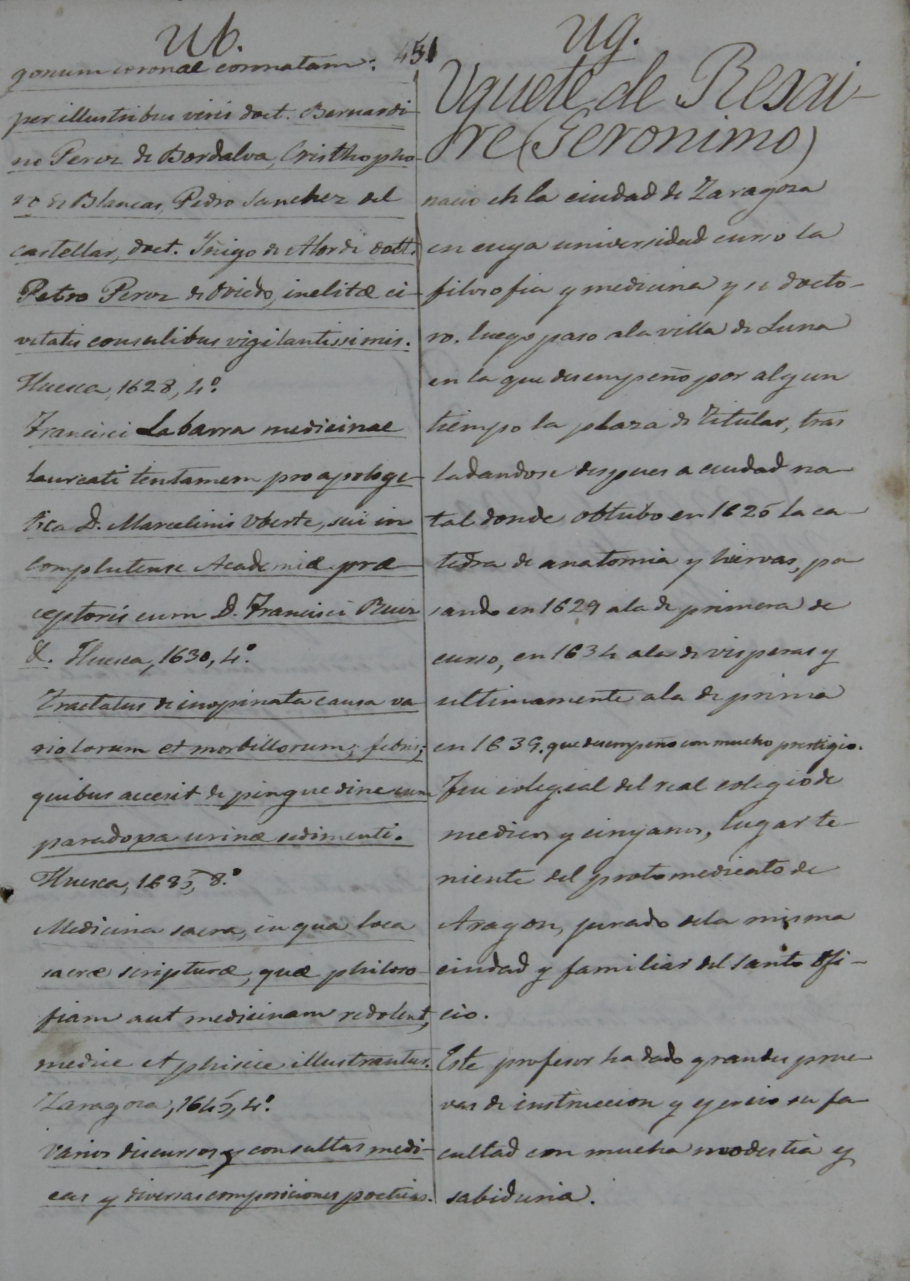 Ub.
gonum coronæ connatam:
per illustribus viris doct. Bernardi-
no Perez de Bordalva, Cristhopho-
ro de Blancas, Pedro Sanchez del
castellar, doct. Iñigo de Alordi doct.
Petro Perez de Oviedo, inelitæ ci-
vitatis consulibus vigilantissimis.
Huesca, 1628, 4º
Francisci Labarra medicinae
laureati tentamem pro apologe-
tica D. Marcelinis Uberte, sui in
complutense Academiæ præ
ceptoris cum D. Francisci Ruiz
&. Huesca, 1630, 4º.
Tractatus de inopinata causa va
riolorum et morbillorum; febris;
quibus accesit de pinguedine cum
paradopa urinæ sedimenti.
Huesca, 1635, 8.º
Medicina sacra, in qua loca
sacræ scripturæ, quæ philoso-
fiam aut medicinam redolent,
medice et phisice illustrantur.
Zaragoza, 1645, 4º.
Varios discursos y consultas medi-
cas y diversas composiciones poeticas.
451
Ug.
Uguete de Resai-
re (Geronimo)
nacio en la ciudad de Zaragoza
en cuya universidad curso la
filosofia y medicina y se docto-
ro. luego paso a la villa de Luna
en la que desempeño por algun
tiempo la plaza de titular, tras
ladandose despues a ciudad na-
tal donde obtubo en 1625 la ca-
tedra de anatomia y hiervas, pa
sando en 1629 a la de primera de
curso, en 1634 a la de visperas y
ultimamente a la de prima
en 1639. que desempeño con mucho prestigio.
Fue colegial del real colegio de
medicos y cirujanos, lugar te-
niente del protomedicato de
Aragon, jurado de la misma
ciudad y familiar del santo Ofi-
cio.
Este profesor ha dado grandes prue-
vas de instruccion y egercio su fa
cultad con mucha modestia y
sabiduria.